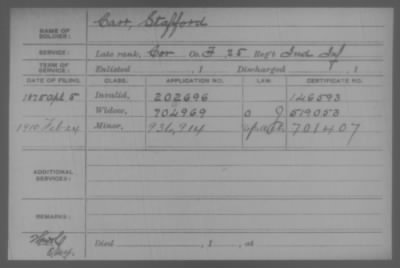 NAME OF SOLDIER: Carr, Stafford
SERVICE: Late rank, Cor Co. F, 25 Reg't Ind Inf
TERM OF SERVICE: Enlisted , 1 Discharged , 1
DATE OF FILING. CLASS. APPLICATION NO. LAW. CERTIFICATE NO.
1875 Apl. 5 Invalid, 202696 146593
Widow, 704969 519053
1910 Feb 24 Minor, 936,914 701407
ADDITIONAL SERVICES:
REMARKS:
Died , 1 , at